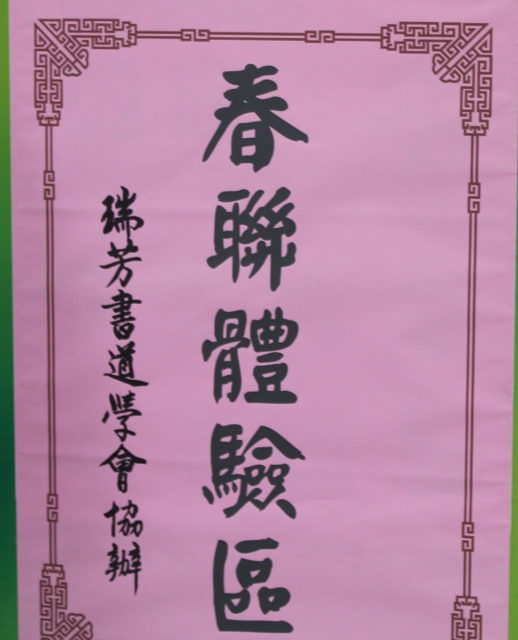 春聯體驗區
瑞芳書道學會協辦